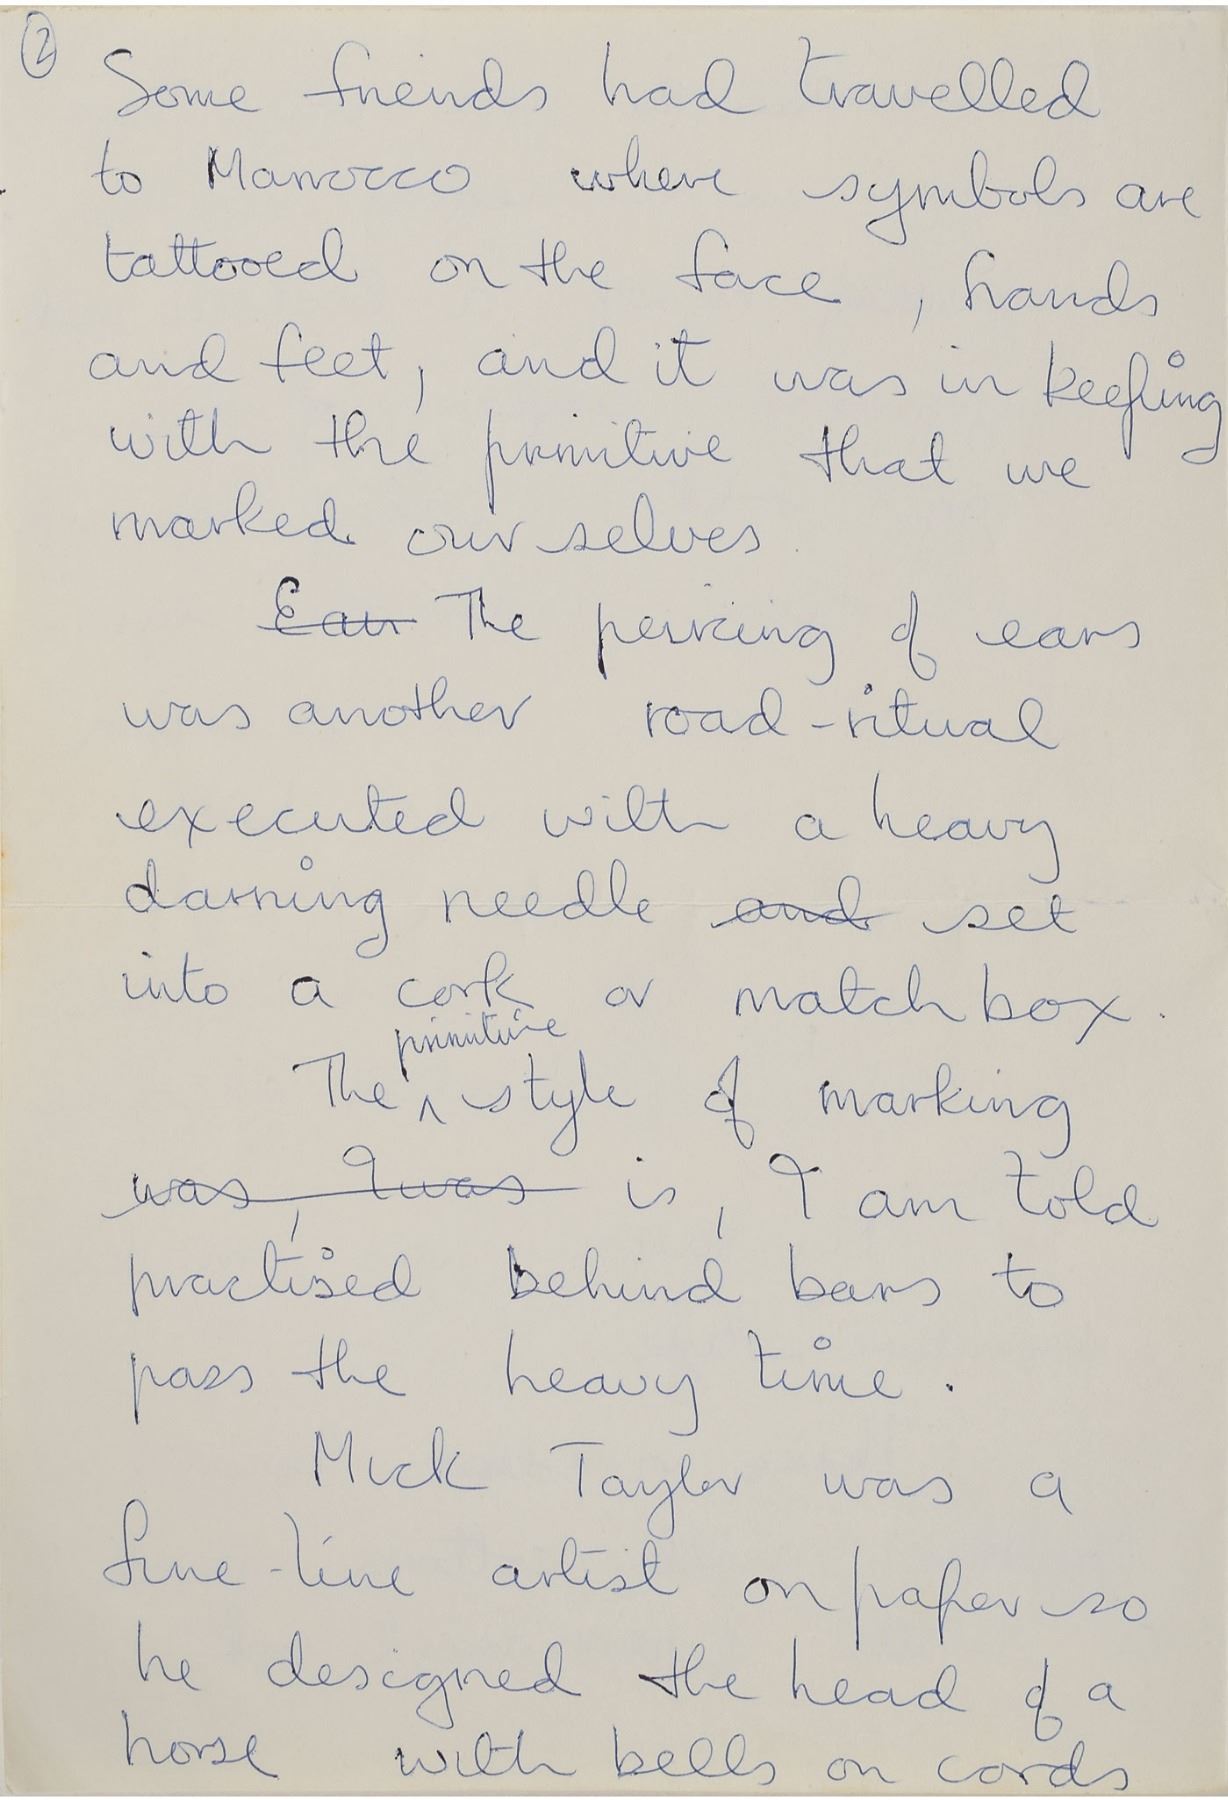 ②
Some friends had travelled
to Marrocco where symbols are
tattooed on the face, hands
and feet, and it was in keeping
with the primitive that we
marked ourselves.
Ear The peircing of ears
was another road-ritual
executed with a heavy
darning needle and set
into a cork or matchbox.
primitive
The ^ style of marking
was, I was is, I am told
practised behind bars to
pass the heavy time.
Mick Taylor was a
fine-line artist on paper so
he designed the head of a
horse with bells on cords